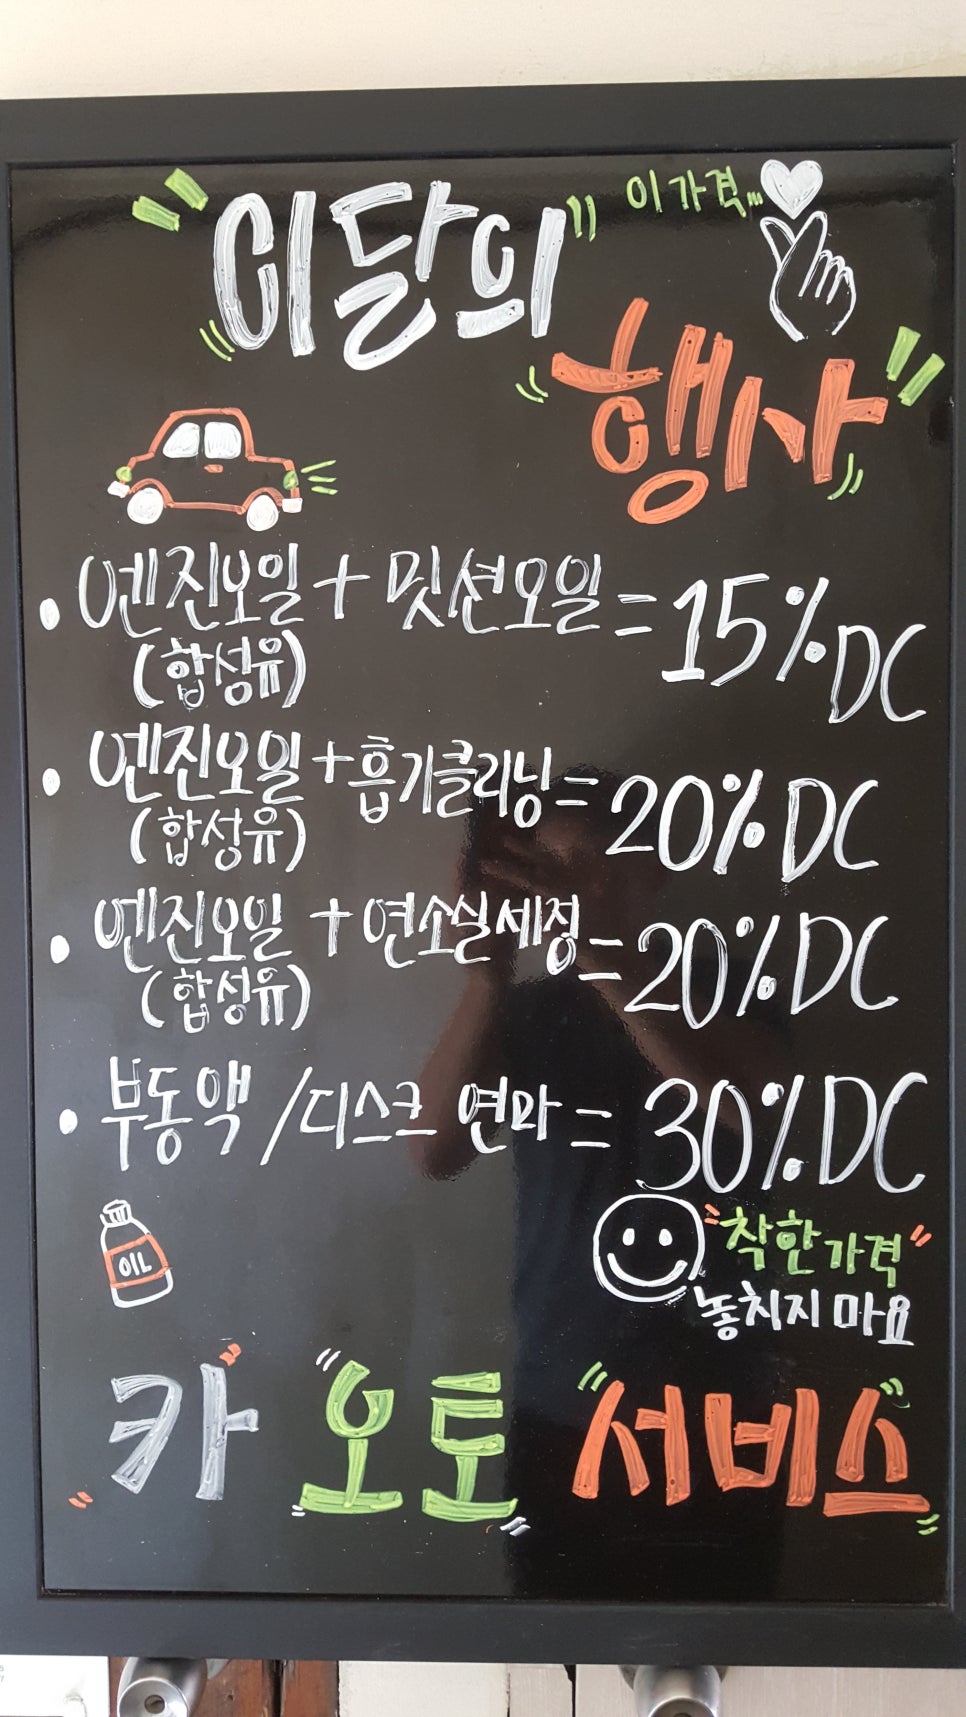 이달의 이 가격...
행사
엔진오일 + 밋션오일 = 15% DC
(합성유)
엔진오일 + 흡기클리닝 = 20% DC
(합성유)
엔진오일 + 연소실세정 = 20% DC
(합성유)
부동액 / 디스크 연마 = 30% DC
OIL
"착한가격"
놓치지 마요
카 오토 서비스